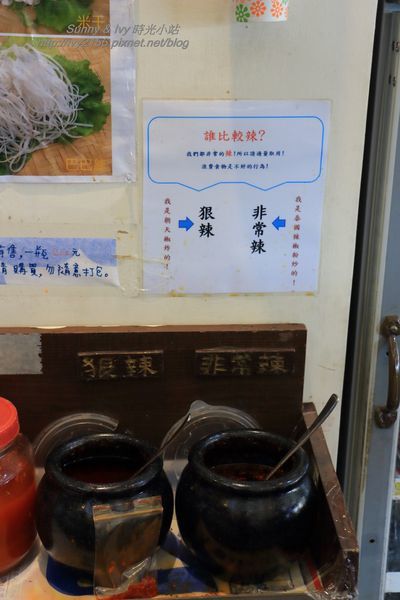 Sunny & Ivy 時光小站
米干
巴巴絲
誰比較辣?
我們都非常的辣!所以請適量取用!
浪費食物是不好的行為!
我是朝天椒炒的!
狠辣
非常辣
我是泰國辣椒粉炒的!
有售,一瓶
元
購買,勿隨意打包。
狠辣
非常辣